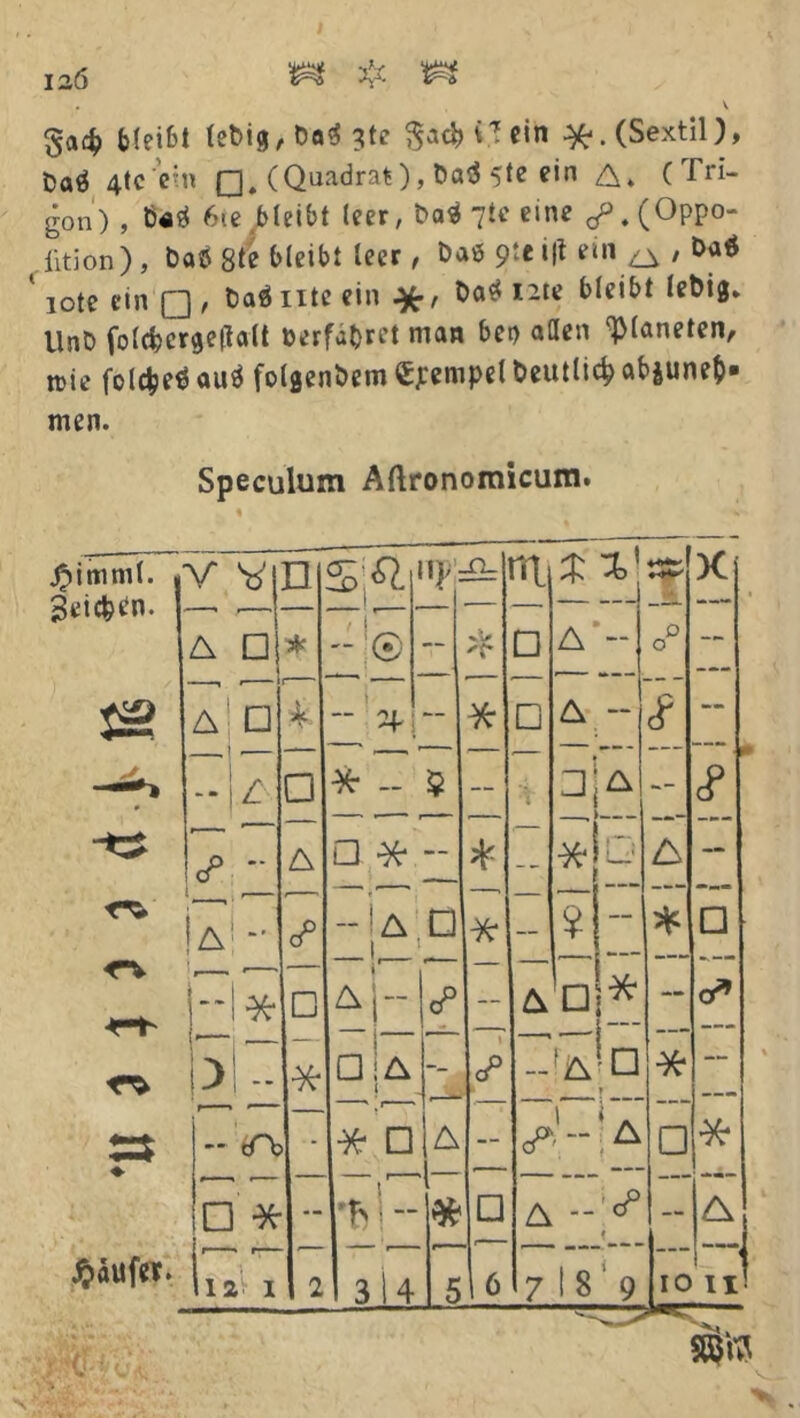 126
Fach bleibt ledig, das 3te Fach iſt ein ⚹. (Sextil),
das 4te ein □. (Quadrat), das 5te ein △. (Tri-
gon), das 6te bleibt leer, das 7te eine ☍. (Oppo-
ſition), das 8te bleibt leer, das 9te iſt ein △, das
10te ein □, das 11te ein ⚹, das 12te bleibt ledig.
Und ſolchergeſtalt verfähret man bey allen Planeten,
wie ſolches aus folgendem Exempel deutlich abzuneh-
men.
Speculum Aſtronomicum.
Himml. ♈ ♉ ♊ ♋ ♌ ♍ ♎ ♏ ♐ ♑ ♒ ♓
Zeichen.
△ □ ⚹ -- ☉ -- ⚹ □ △ -- ☍ --
△ □ ⚹ -- ♃ -- ⚹ □ △ -- ☍ --
-- △ □ ⚹ -- ☿ -- □ △ -- ☍
☍ -- △ □ ⚹ -- ⚹ -- ⚹ □ △ --
△ -- ☍ -- △ □ ⚹ -- ♀ -- ⚹ □
-- ⚹ □ △ -- ☍ -- △ □ ⚹ -- ♂
☽ -- ⚹ □ △ -- ☍ -- △ □ ⚹ --
-- ☊ - ⚹ □ △ -- ☍ -- △ □ ⚹
□ ⚹ -- ♄ -- ⚹ □ △ -- ☍ -- △
Häuſer. 12 1 2 3 4 5 6 7 8 9 10 11